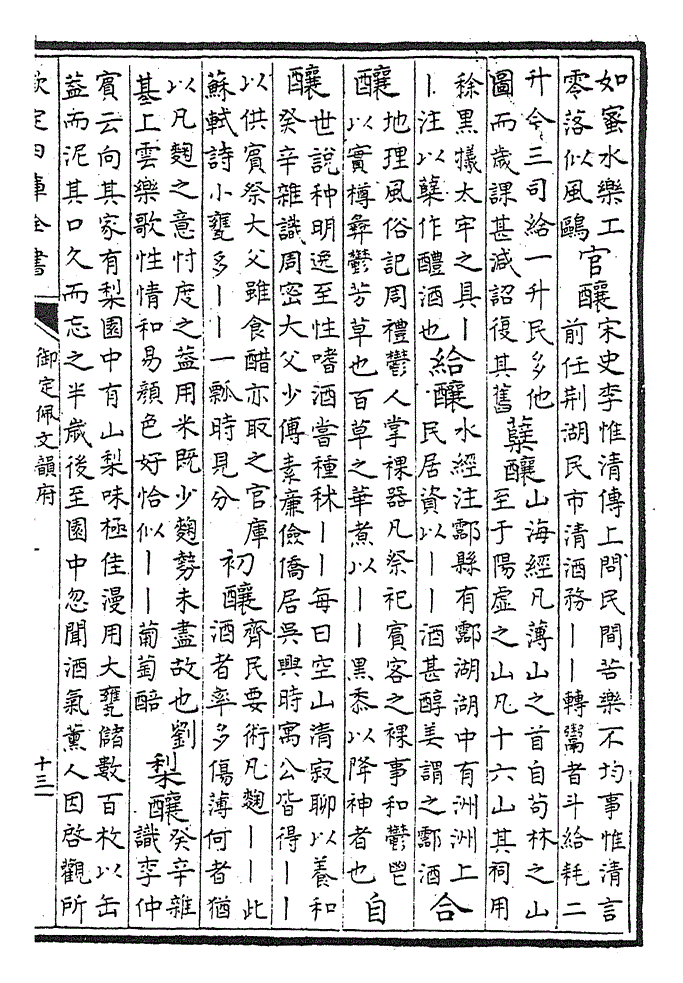 如蜜水樂工
零落似風鷗
官釀
宋史李惟清傳上問民間苦樂不均事惟清言
前任荆湖民市清酒務丨丨轉鬻者斗給耗二
升今三司給一升民多他
圖而歲課甚減詔復其舊
糵釀
山海經凡薄山之首自茍林之山
至于陽虛之山凡十六山其祠用
稌黑犧太牢之具丨
丨注以糵作醴酒也
給釀
水經注酃縣有酃湖湖中有洲洲上
民居資以丨丨酒甚醇美謂之酃酒
合
釀
地理風俗記周禮鬱人掌祼器凡祭祀賓客之祼事和鬱鬯
以實樽彝鬱芳草也百草之華煮以丨丨黑黍以降神者也
自
釀
世說种明逸至性嗜酒嘗種秫丨丨每曰空山清寂聊以養和
癸辛雜識周密大父少傅素廉儉僑居吳興時寓公皆得丨丨
以供賓祭大父雖食醋亦取之官庫
蘇軾詩小甕多丨丨一瓢時見分
初釀
齊民要術凡麴丨丨此
酒者率多傷薄何者猶
以凡麴之意忖度之葢用米既少麴勢未盡故也劉
基上雲樂歌性情和易顏色好恰似丨丨葡萄醅
梨釀
癸辛雜
識李仲
賓云向其家有梨園中有山梨味極佳漫用大甕儲數百枚以缶
葢而泥其口久而忘之半歲後至園中忽聞酒氣薰人因啓觀所
欽定四庫全書
御定佩文韻府
十三